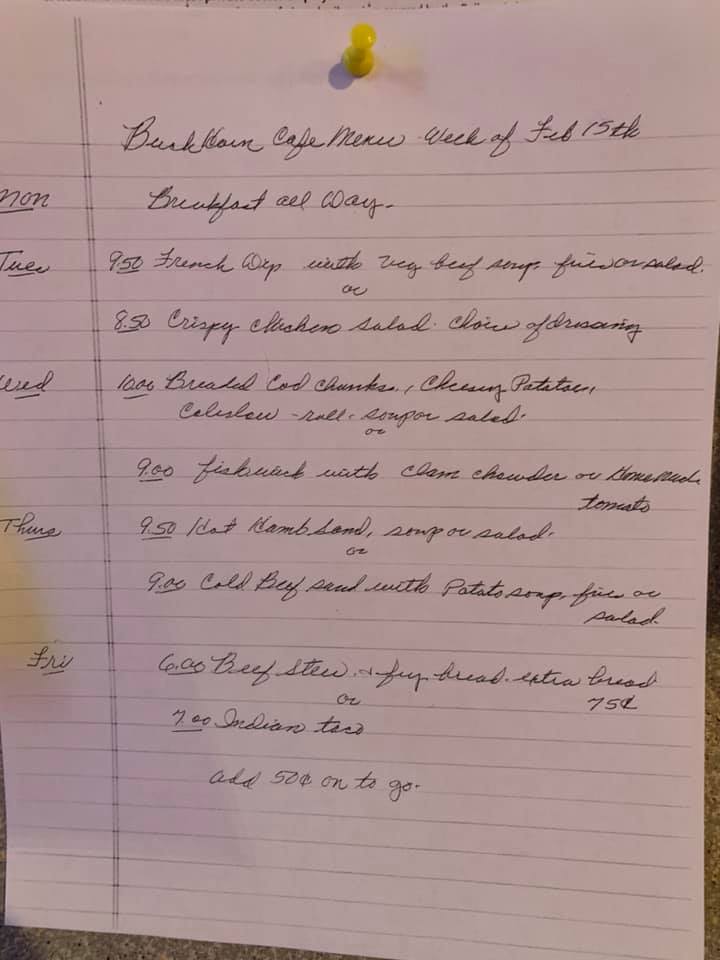 Buckhorn Cafe Menu Week of Feb 15th
Mon Breakfast all Day.
Tues 9.50 French Dip with Veg beef soup, fries or salad.
or
8.50 Crispy Chicken Salad. Choice of dressing
Wed 10.00 Breaded Cod Chunks, Cheesy Potatoes,
Coleslaw - roll. soup or salad.
or
9.00 fishwich with clam chowder or Homemade
tomato
Thurs 9.50 Hot Hamb. Sand, soup or salad.
or
9.00 Cold Beef sand with Potato soup, fries or
salad.
Fri 6.00 Beef Stew & fry bread. extra bread
or 75¢
7.00 Indian taco
add 50¢ on to go.